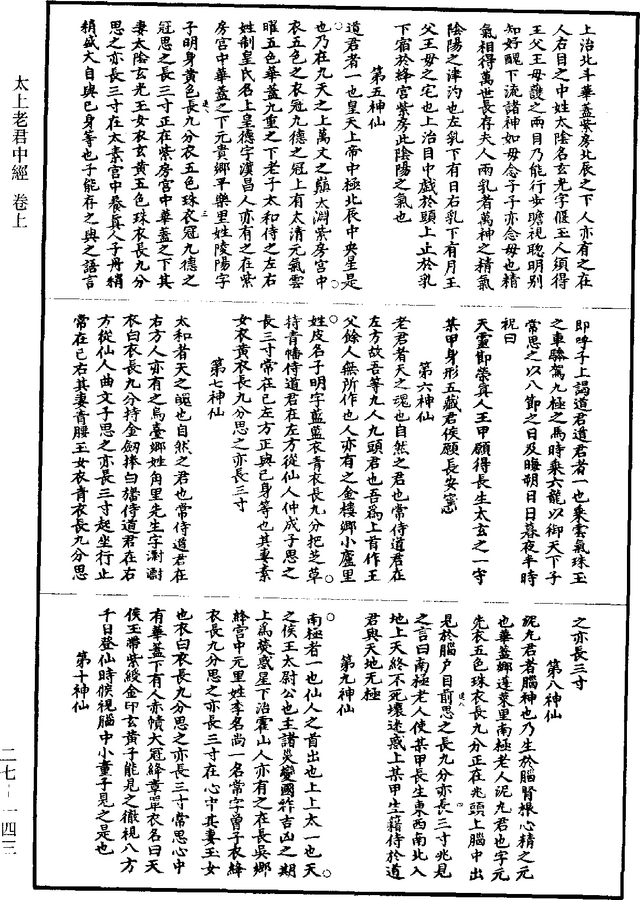 太上老君中經 卷上
二七－一四三
上治北斗華蓋紫房北辰之下人亦有之在
人右目之中姓太陰名玄光字偃玉人須得
王父王母護之兩目乃能行步瞻視聰明別
知好醜下流諸神如母念子子亦念母也精
氣相得萬世長存夫人兩乳者萬神之精氣
陰陽之津汋也左乳下有日右乳下有月王
父王母之宅也上治目中戲於頭上止於乳
下宿於絳宮紫房此陰陽之氣也
第五神仙
道君者一也皇天上帝中極北辰中央星是
也乃在九天之上萬丈之巔太淵紫房宮中
衣五色之衣冠九德之冠上有太清元氣雲
曜五色華蓋九重之下老子太和侍之左右
姓制皇氏名上皇德字漢昌人亦有之在紫
房宮中華蓋之下元貴鄉平樂里姓陵陽字
子明身黃色長九分衣五色珠衣冠九德之
冠思之長三寸正在紫房宮中華蓋之下其
妻太陰玄光玉女衣玄黃五色珠衣長九分
思之亦長三寸在太素宮中養真人子丹稍
稍盛大自與己身等也子能存之與之語言
即呼子上謁道君道君者一也乘雲氣珠玉
之車驂駕九極之馬時乘六龍以御天下子
常思之以八節之日及晦朔日日暮夜半時
祝曰
天靈節榮真人王甲願得長生太玄之一守
某甲身形五藏君侯願長安寧
第六神仙
老君者天之魂也自然之君也常侍道君在
左方故吾等九人九頭君也吾為上首作王
父餘人無所作也人亦有之金樓鄉小廬里
姓皮名子明字藍藍衣青衣長九分把芝草
持青幡侍道君在左方從仙人仲成子思之
長三寸常在己左方正與己身等也其妻素
女衣黃衣長九分思之亦長三寸
第七神仙
太和者天之魄也自然之君也常侍道君在
右方人亦有之烏臺鄉姓角里先生字灂灂
衣白衣長九分持金劒捧白旛侍道君在右
方從仙人曲文子思之亦長三寸起坐行止
常在己右其妻青腰玉女衣青衣長九分思
之亦長三寸
第八神仙
泥丸君者腦神也乃生於腦腎根心精之元
也華蓋鄉蓬萊里南極老人泥丸君也字元
先衣五色珠衣長九分正在兆頭上腦中出
見於腦戶目前思之長九分亦長三寸兆見
之言曰南極老人使某甲長生東西南北入
地上天終不死壞迷惑上某甲生籍侍於道
君與天地無極
第九神仙
南極者一也仙人之首出也上上太一也天
之侯王太尉公也主諸災變國祚吉凶之期
上為熒惑星下治霍山人亦有之在長吳鄉
絳宮中元里姓李名尚一名常字曾子衣絳
衣長九分思之亦長三寸在心中其妻玉女
也衣白衣長九分思之亦長三寸常思心中
有華蓋下有人赤幘大冠絳章單衣名曰天
侯玉帶紫綬金印玄黃子能見之徹視八方
千日登仙時候視腦中小童子見之是也
第十神仙